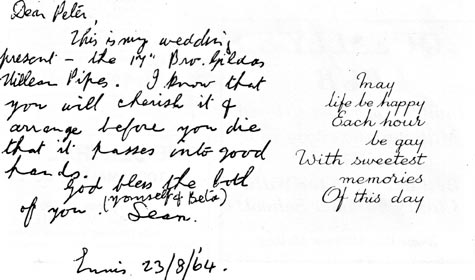 Dear Peter,
This is my wedding
present - the 17" Bro. Gildas
Uillean Pipes. I know that
you will cherish it &
arrange before you die
that it passes into good
hands.
God bless the both
of you. (yourself & Beta)
Sean.
Ennis 23/8/'64.
May
life be happy
Each hour
be gay
With sweetest
memories
Of this day